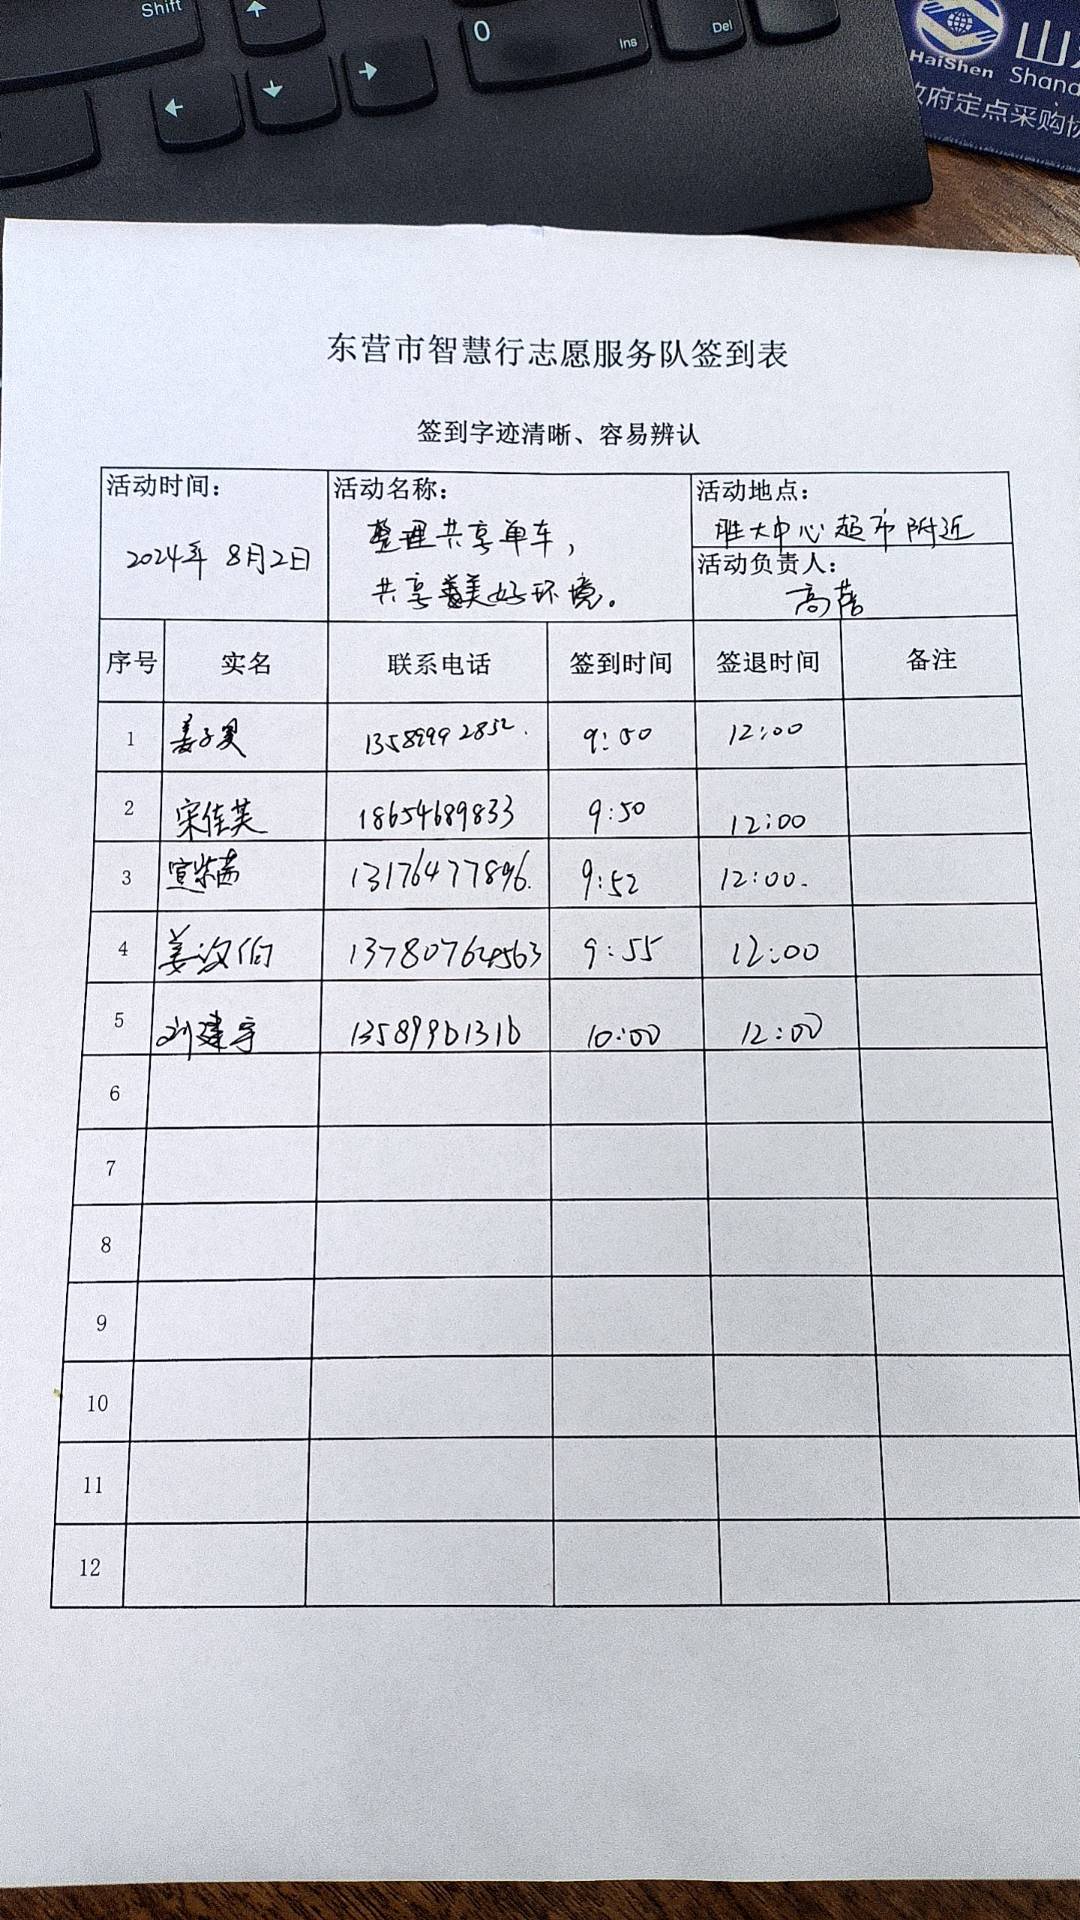 Shift
0
Ins
Del
HaiShen
Shand
府定点采购协
东营市智慧行志愿服务队签到表
签到字迹清晰、容易辨认
活动时间： 活动名称： 活动地点：
2024年 8月2日 整理共享单车， 胜大中心超市附近
共享美好环境。 活动负责人：
高蓓
序号 实名 联系电话 签到时间 签退时间 备注
1 姜子昊 13589992852. 9:50 12:00
2 宋佳芙 18654689833 9:50 12:00
3 13176477896. 9:52 12:00.
4 姜汶伯 9:55 12:00
5 刘建宇 13589961316 10:00 12:00
6
7
8
9
10
11
12